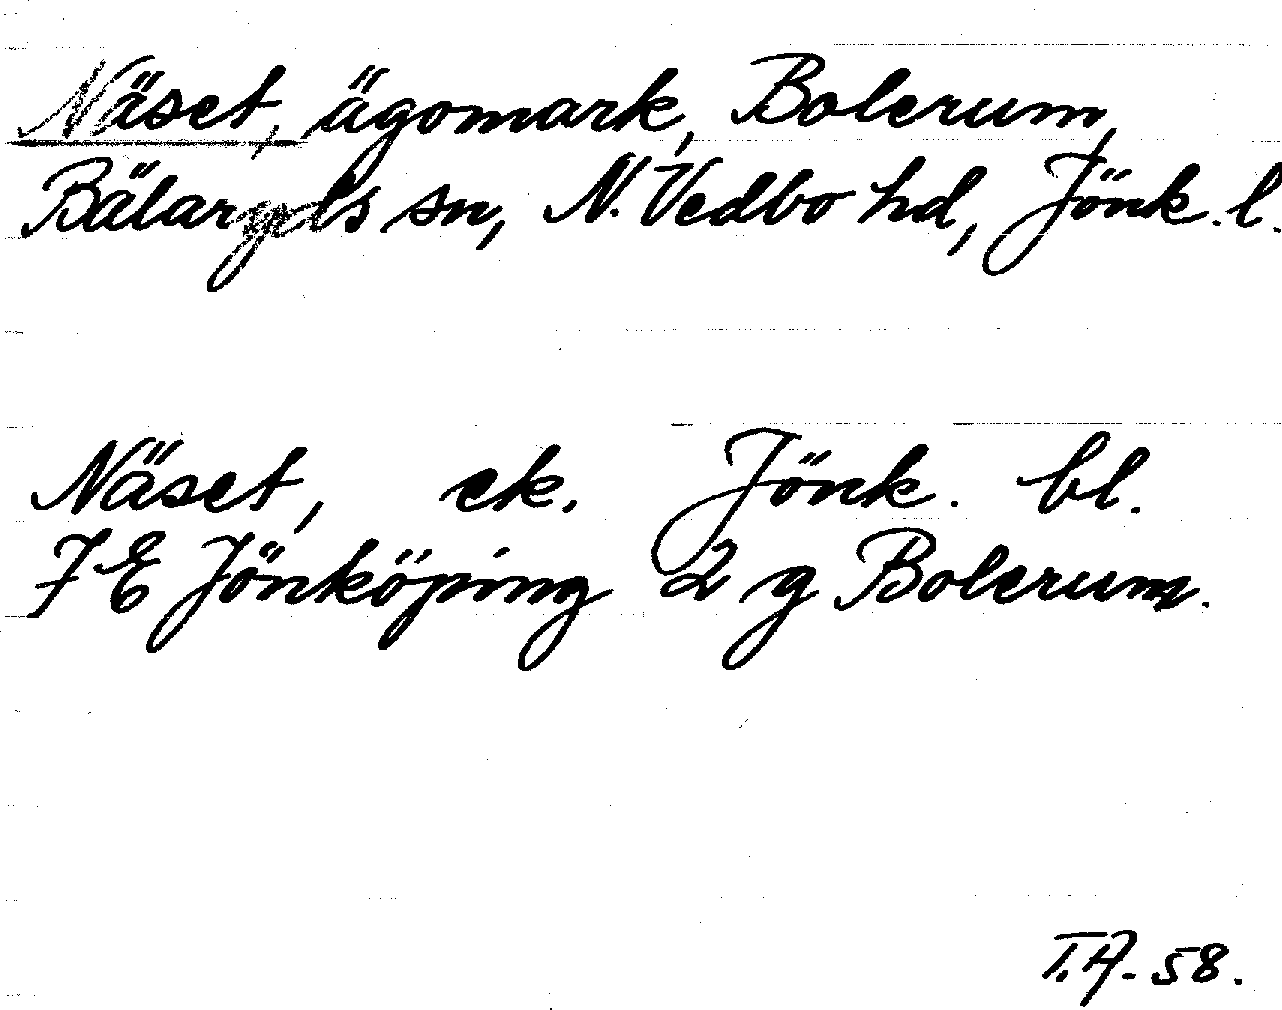 Näset, ägomark, Bolerum,
Bälaryds sn, N. Vedbo hd, Jönk. l.
Näset, ek. Jönk. bl.
7E Jönköping 2 g Bolerum.
T.A. 58.